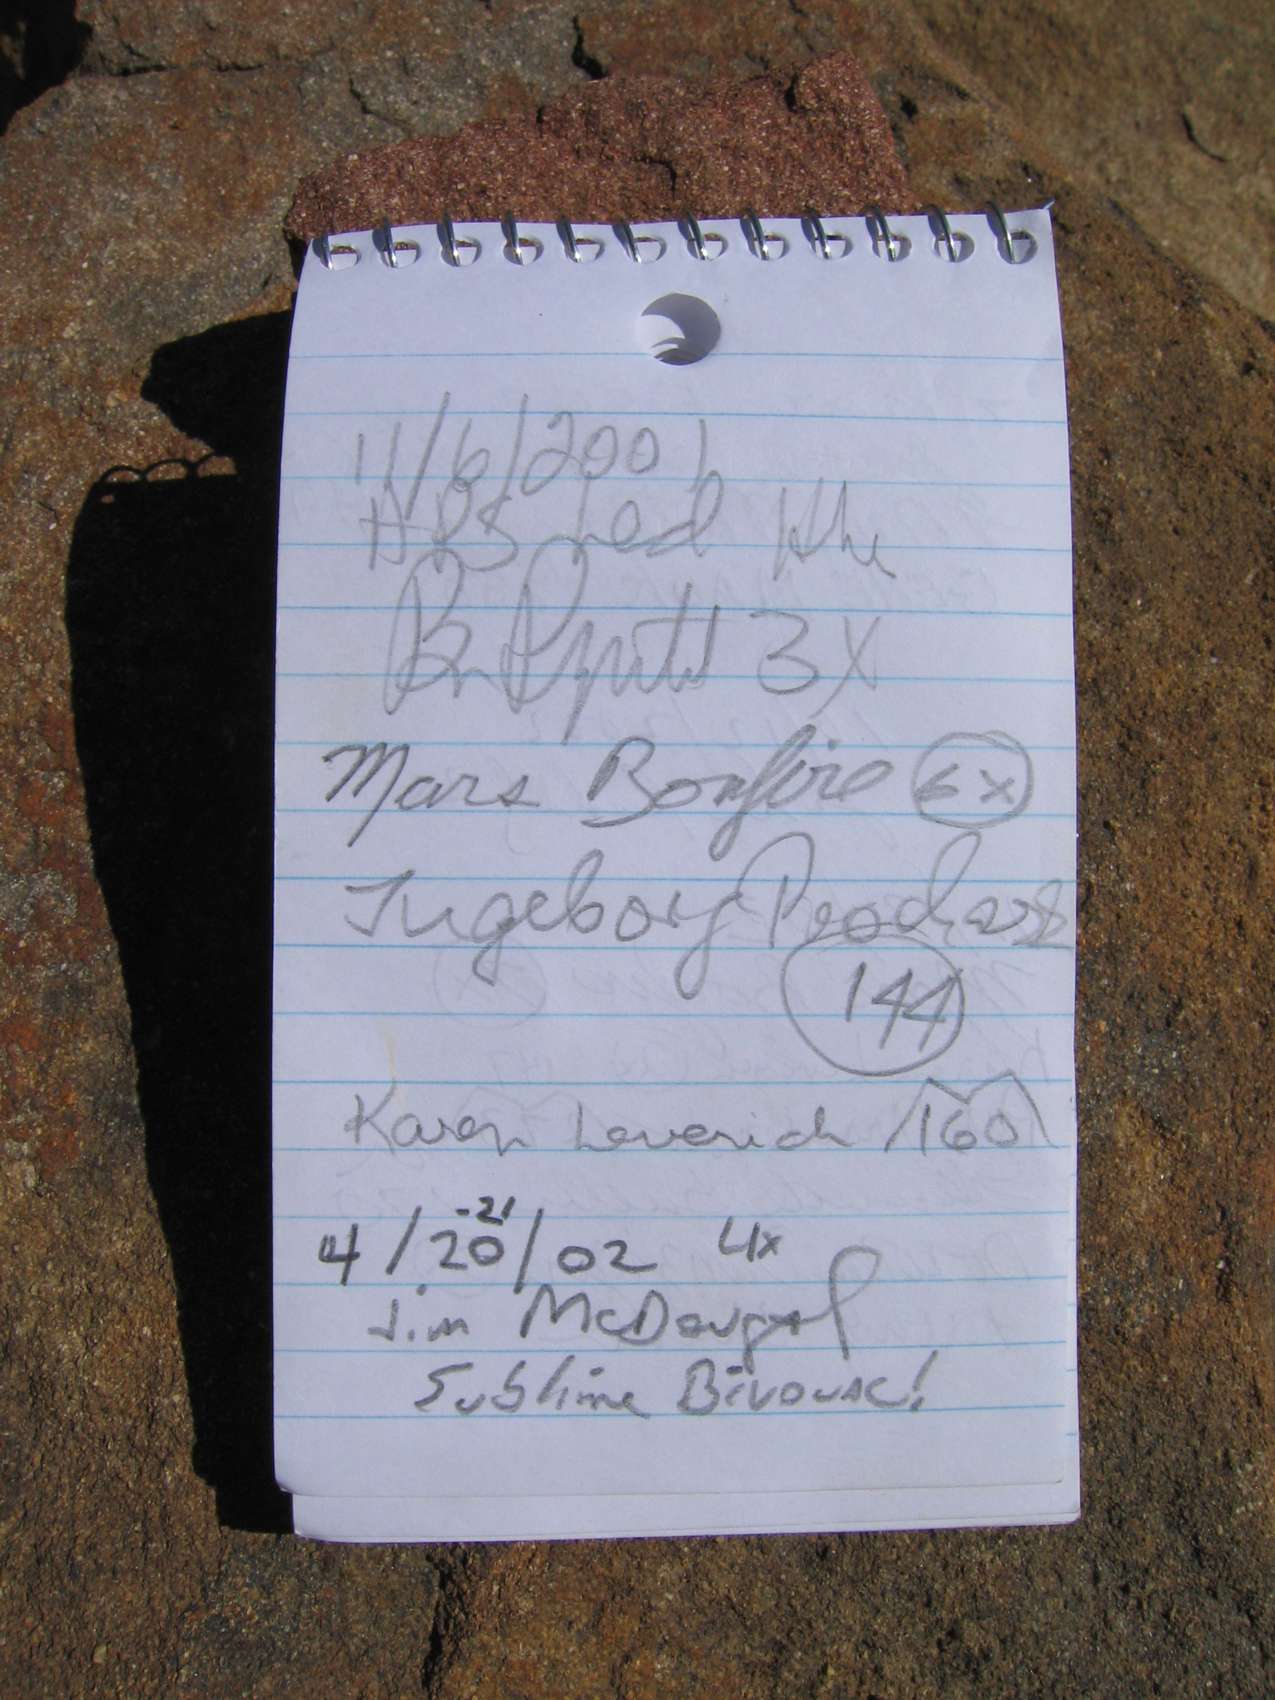 11/6/2001
HPS Led Hike
3X
Mars Bonfire 6x
Ingeborg Prochazka
144
Karen Leverich 160
4/20-21/02 4x
Jim McDougal
Sublime Bivouac!